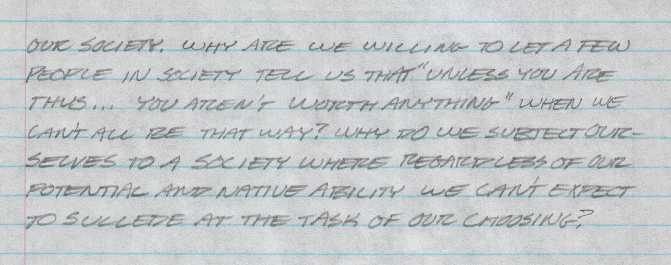 OUR SOCIETY. WHY ARE WE WILLING TO LET A FEW
PEOPLE IN SOCIETY TELL US THAT "UNLESS YOU ARE
THUS... YOU AREN'T WORTH ANYTHING" WHEN WE
CAN'T ALL BE THAT WAY? WHY DO WE SUBJECT OUR-
SELVES TO A SOCIETY WHERE REGARDLESS OF OUR
POTENTIAL AND NATIVE ABILITY WE CAN'T EXPECT
TO SUCCEDE AT THE TASK OF OUR CHOOSING?